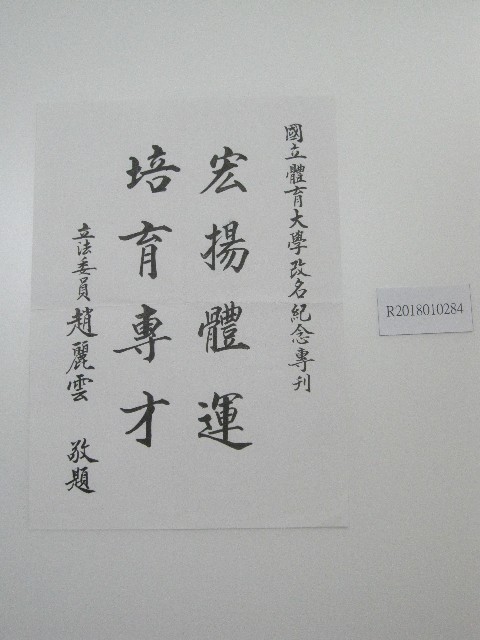 國立體育大學改名紀念專刊
宏揚體運
培育專才
立法委員趙麗雲 敬題
R2018010284